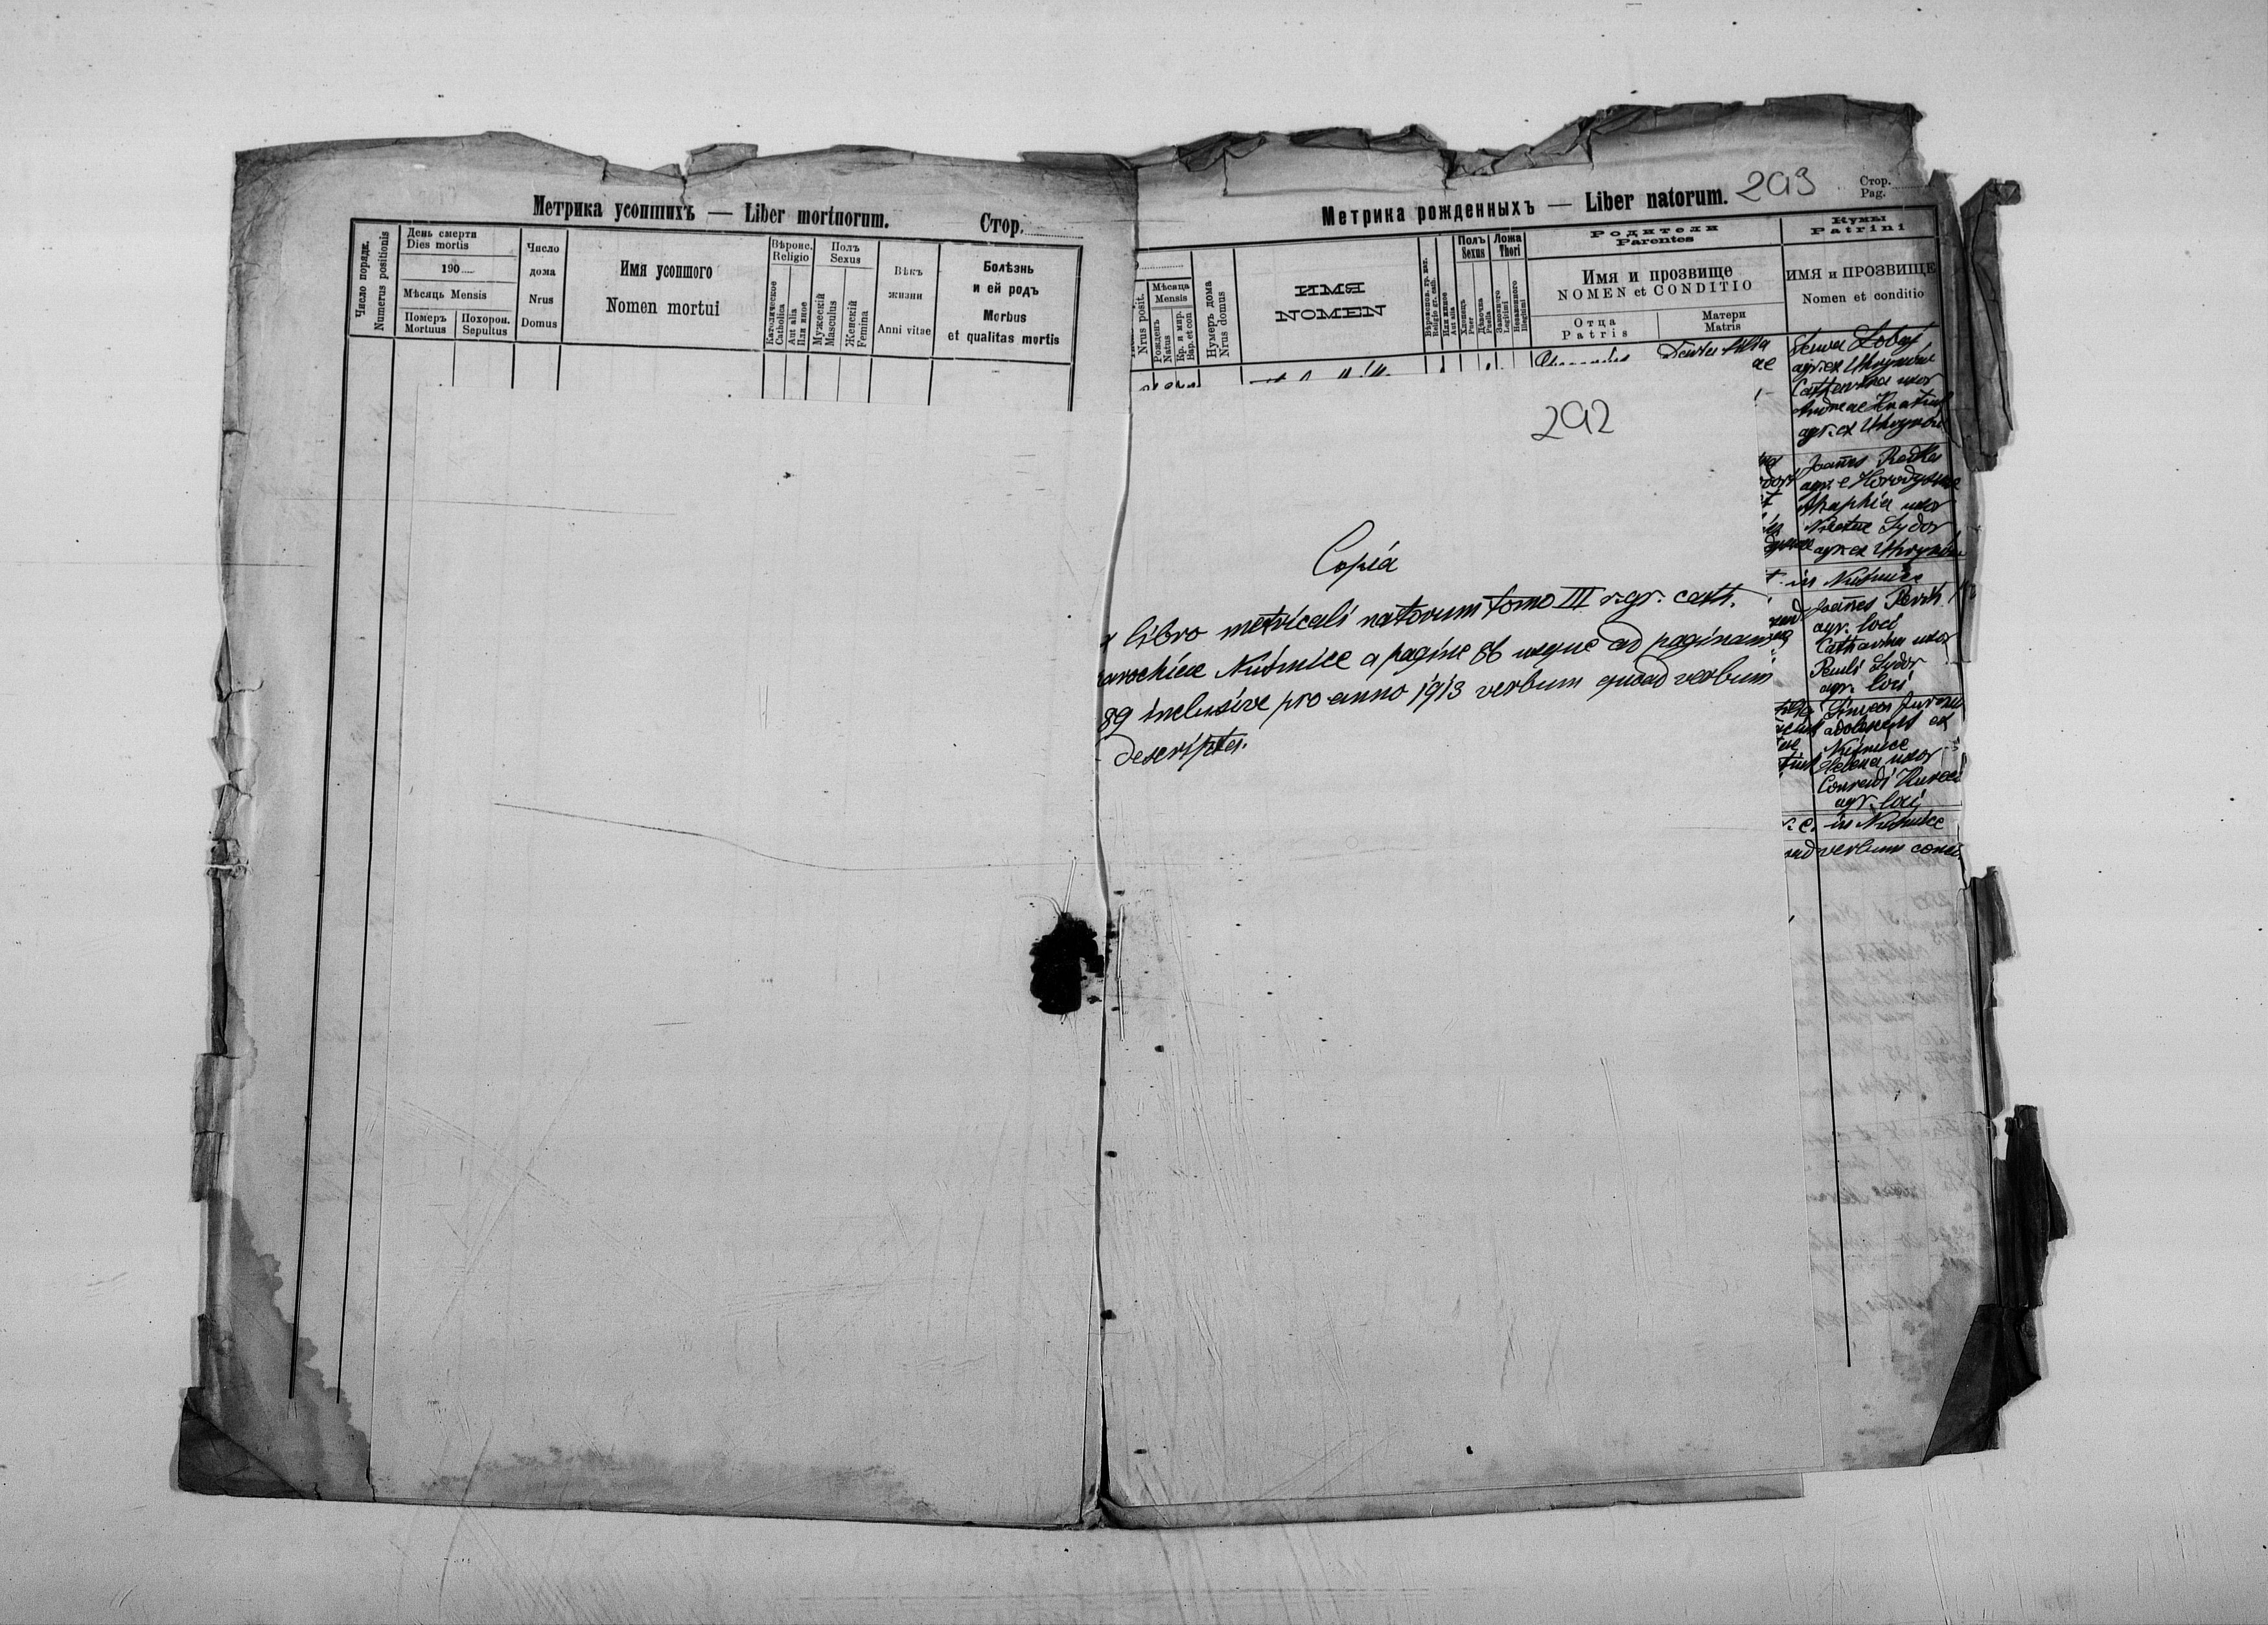 Метрика усопшихъ — Liber mortuorum. Стор.
Число порядк.
Numerus positionis
День смерти
Dies mortis
190
Мѣсяць Mensis
Померъ
Mortuus
Похорон.
Sepultus
Число
дома
Nrus
Domus
Имя усопшого
Nomen mortui
Вѣроис.
Religio
Католическое
Catholica
Aut alia
Или иное
Полъ
Sexus
Мужескій
Masculus
Женскій
Femina
Вѣкъ
жизни
Anni vitae
Болѣзнь
и ей родъ
Morbus
et qualitas mortis
Метрика рожденныхъ — Liber natorum. 293
Стор.
Pag.
Nrus posit.
Мѣсяца
Mensis
Рожденъ
Natus
Кр. и мир.
Bap. et con
Нумеръ дома
Nrus domus
ИМЯ
NOMEN
Religio gr. cath.
Или иное
Aut alia
Полъ
Sexus
Хлопецъ
Puer
Дѣвочка
Puella
Ложа
Thori
Законного
Legitimi
Незаконного
Illegitimi
Родители
Parentes
Имя и прозвище
NOMEN et CONDITIO
Отца
Patris
Матери
Matris
Кумы
Patrini
ИМЯ и ПРОЗВИЩЕ
Nomen et conditio
agr. ex Uhrynów
Catharina uxor
Andreae
agr. ex Uhrynów
Joañes
agr. e Horodyszcze
Ahaphia uxor
Sydor
agr. ex Uhrynów
in Nuśmice
Joañes
agr. loci
Catharina uxor
Pauli Sydor
agr. loci
Simeon
adolescens ex
Nuśmice
Helena uxor
Conradi
agr. loci
in Nuśmice
verbum
292
Copia
libro metricali natorum tomo III r. gr. cath.
Nuśmice a pagina 86 usque ad paginam
89 inclusive pro anno 1913 verbum quoad verbum
descripta.